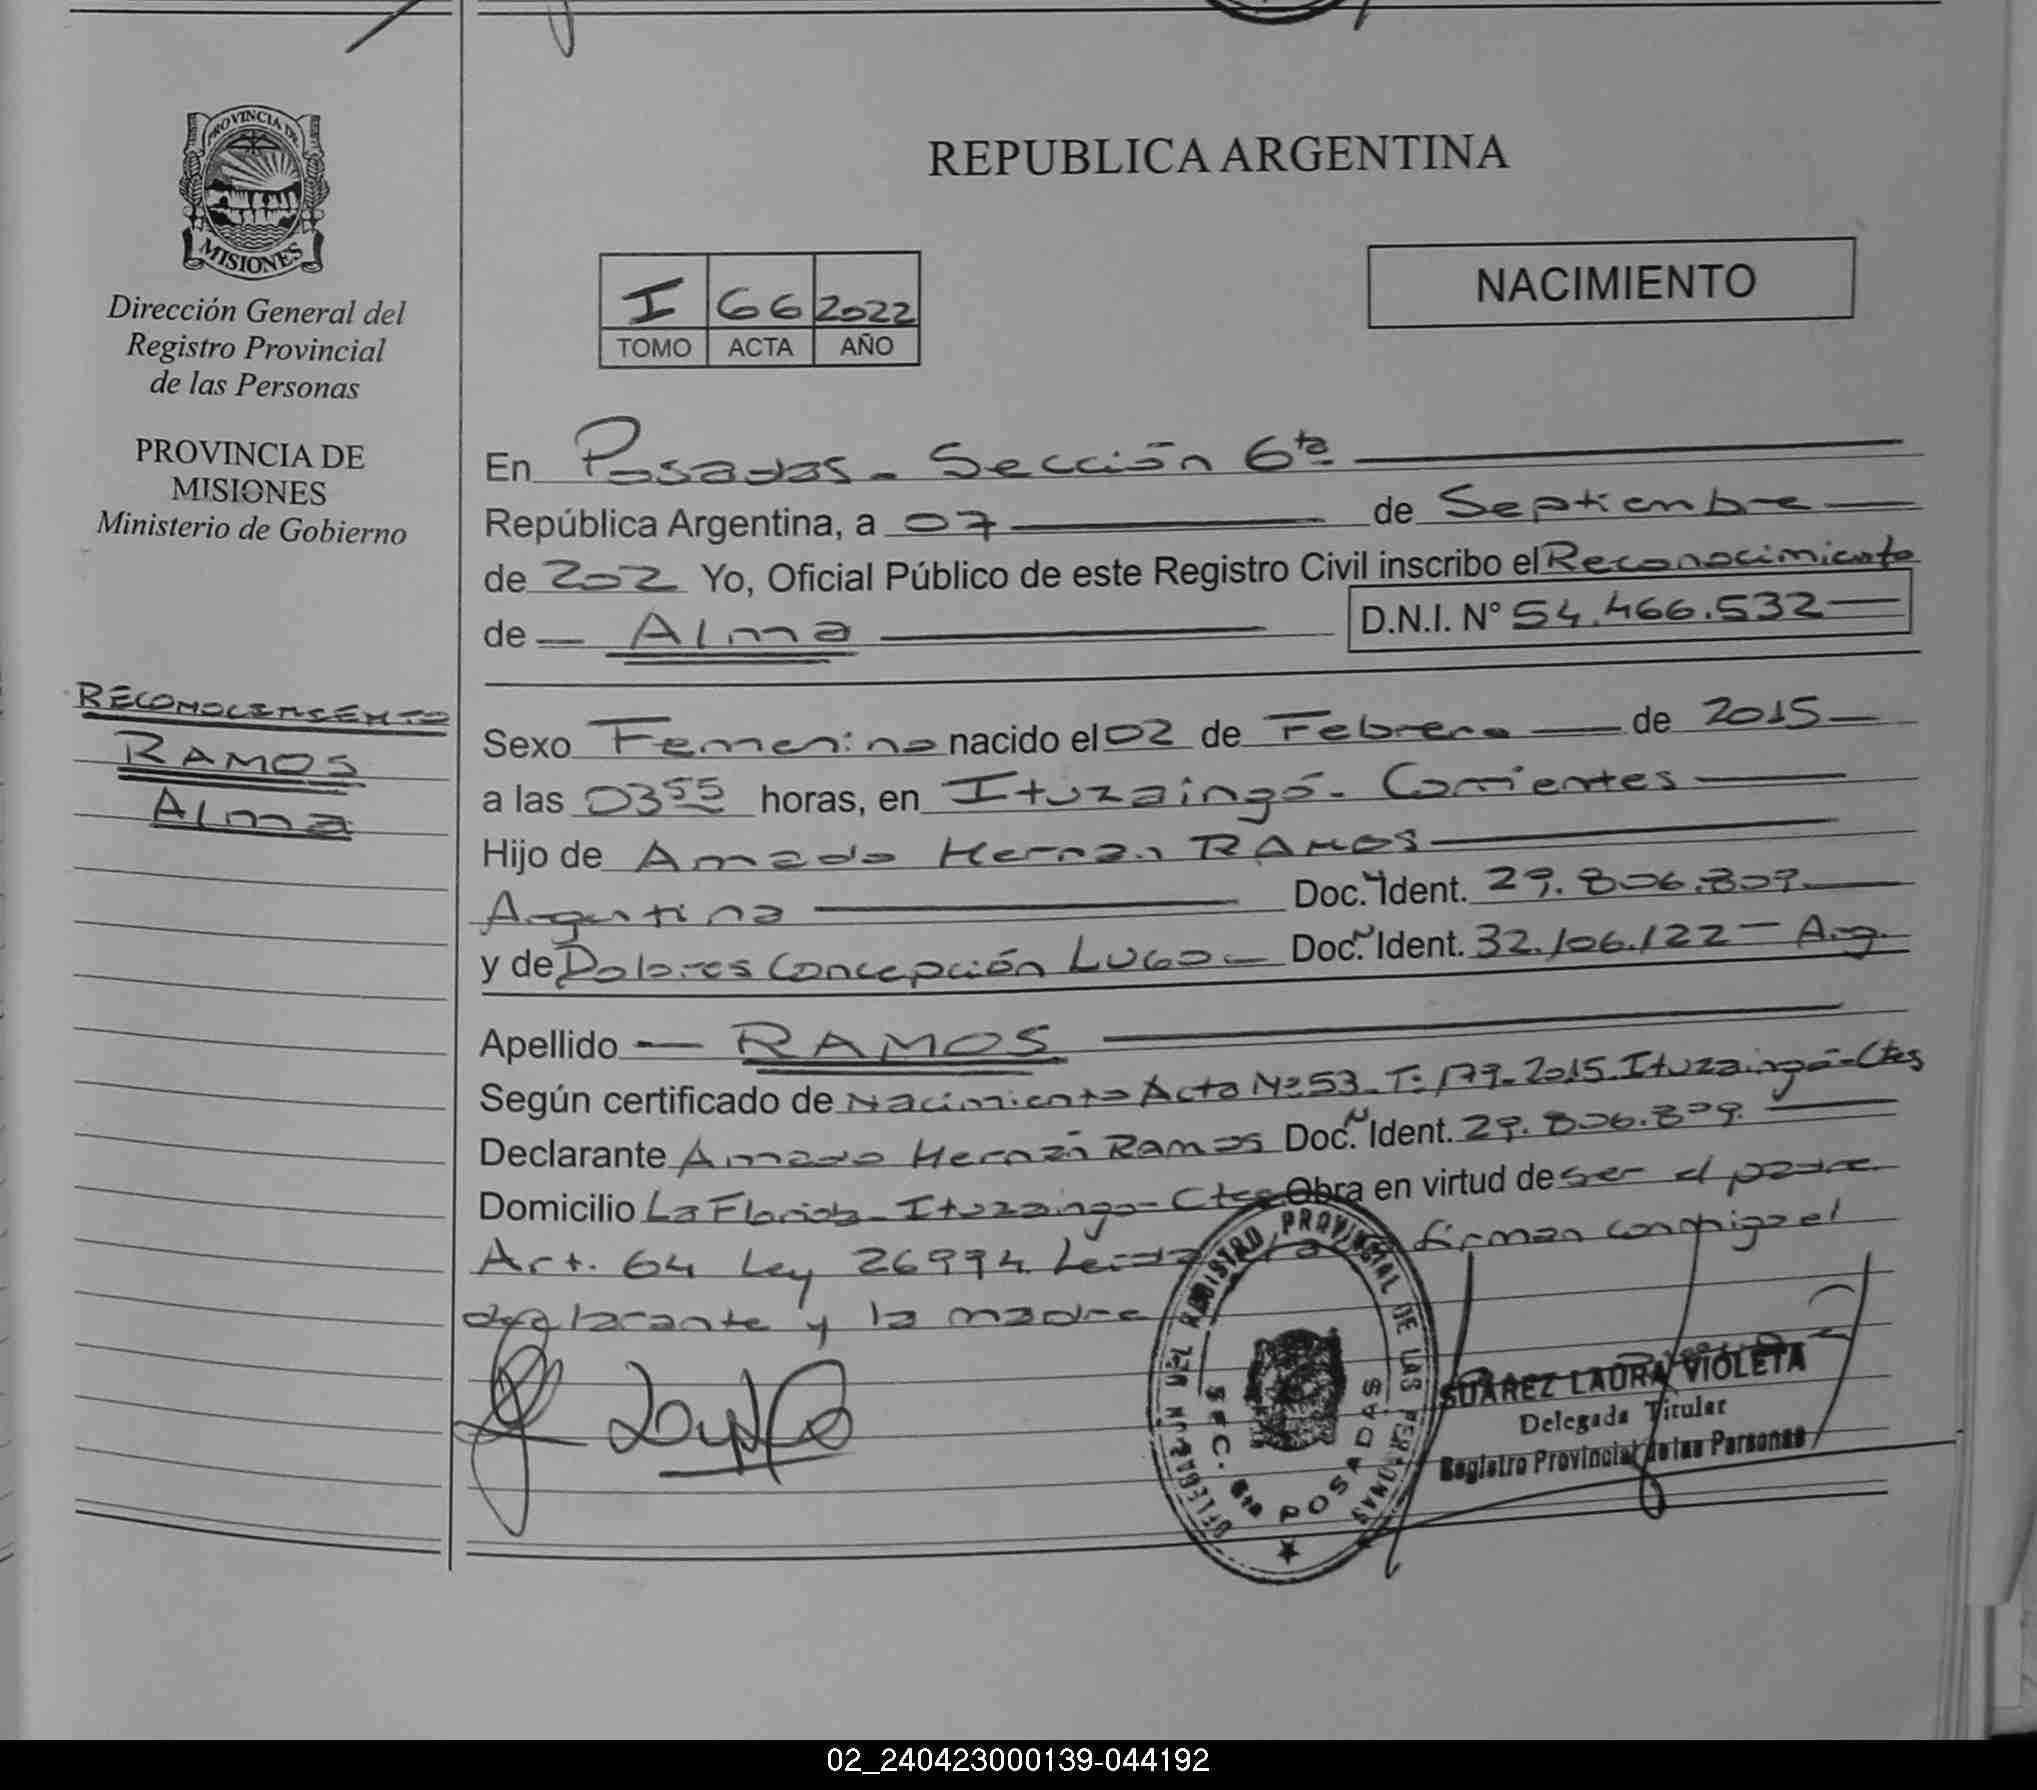 PROVINCIA DE
MISIONES
Dirección General del
Registro Provincial
de las Personas
PROVINCIA DE
MISIONES
Ministerio de Gobierno
RECONOCIMIENTO
RAMOS
Alma
REPUBLICA ARGENTINA
I 66 2022
TOMO ACTA AÑO
NACIMIENTO
En Posadas - Sección 6ta
República Argentina, a 07 de Septiembre
de 202 Yo, Oficial Público de este Registro Civil inscribo el Reconocimiento
de Alma D.N.I. N° 54.466.532
Sexo Femenino nacido el 02 de Febrero de 2015
a las 03 55 horas, en Ituzaingó - Corrientes
Hijo de Amado Hernan RAMOS
Argentina Doc. Ident. 29.806.809
y de Dolores Concepción LUGO Doc. Ident. 32.106.122 - Arg.
Apellido RAMOS
Según certificado de Nacimiento Acta Nº 53 - T: 179 - 2015 Ituzaingó - Ctes
Declarante Amado Hernán Ramos Doc. Ident. 29.806.809
Domicilio La Florida - Ituzaingo - Ctes Obra en virtud de ser el padre
Art. 64 Ley 26994 Leida firman conmigo el
declarante y la madre
DELEGACION DEL REGISTRO PROVINCIAL DE LAS PERSONAS
SEC. 6ta POSADAS
SUAREZ LAURA VIOLETA
Delegada Titular
Registro Provincial de las Personas
02_240423000139-044192